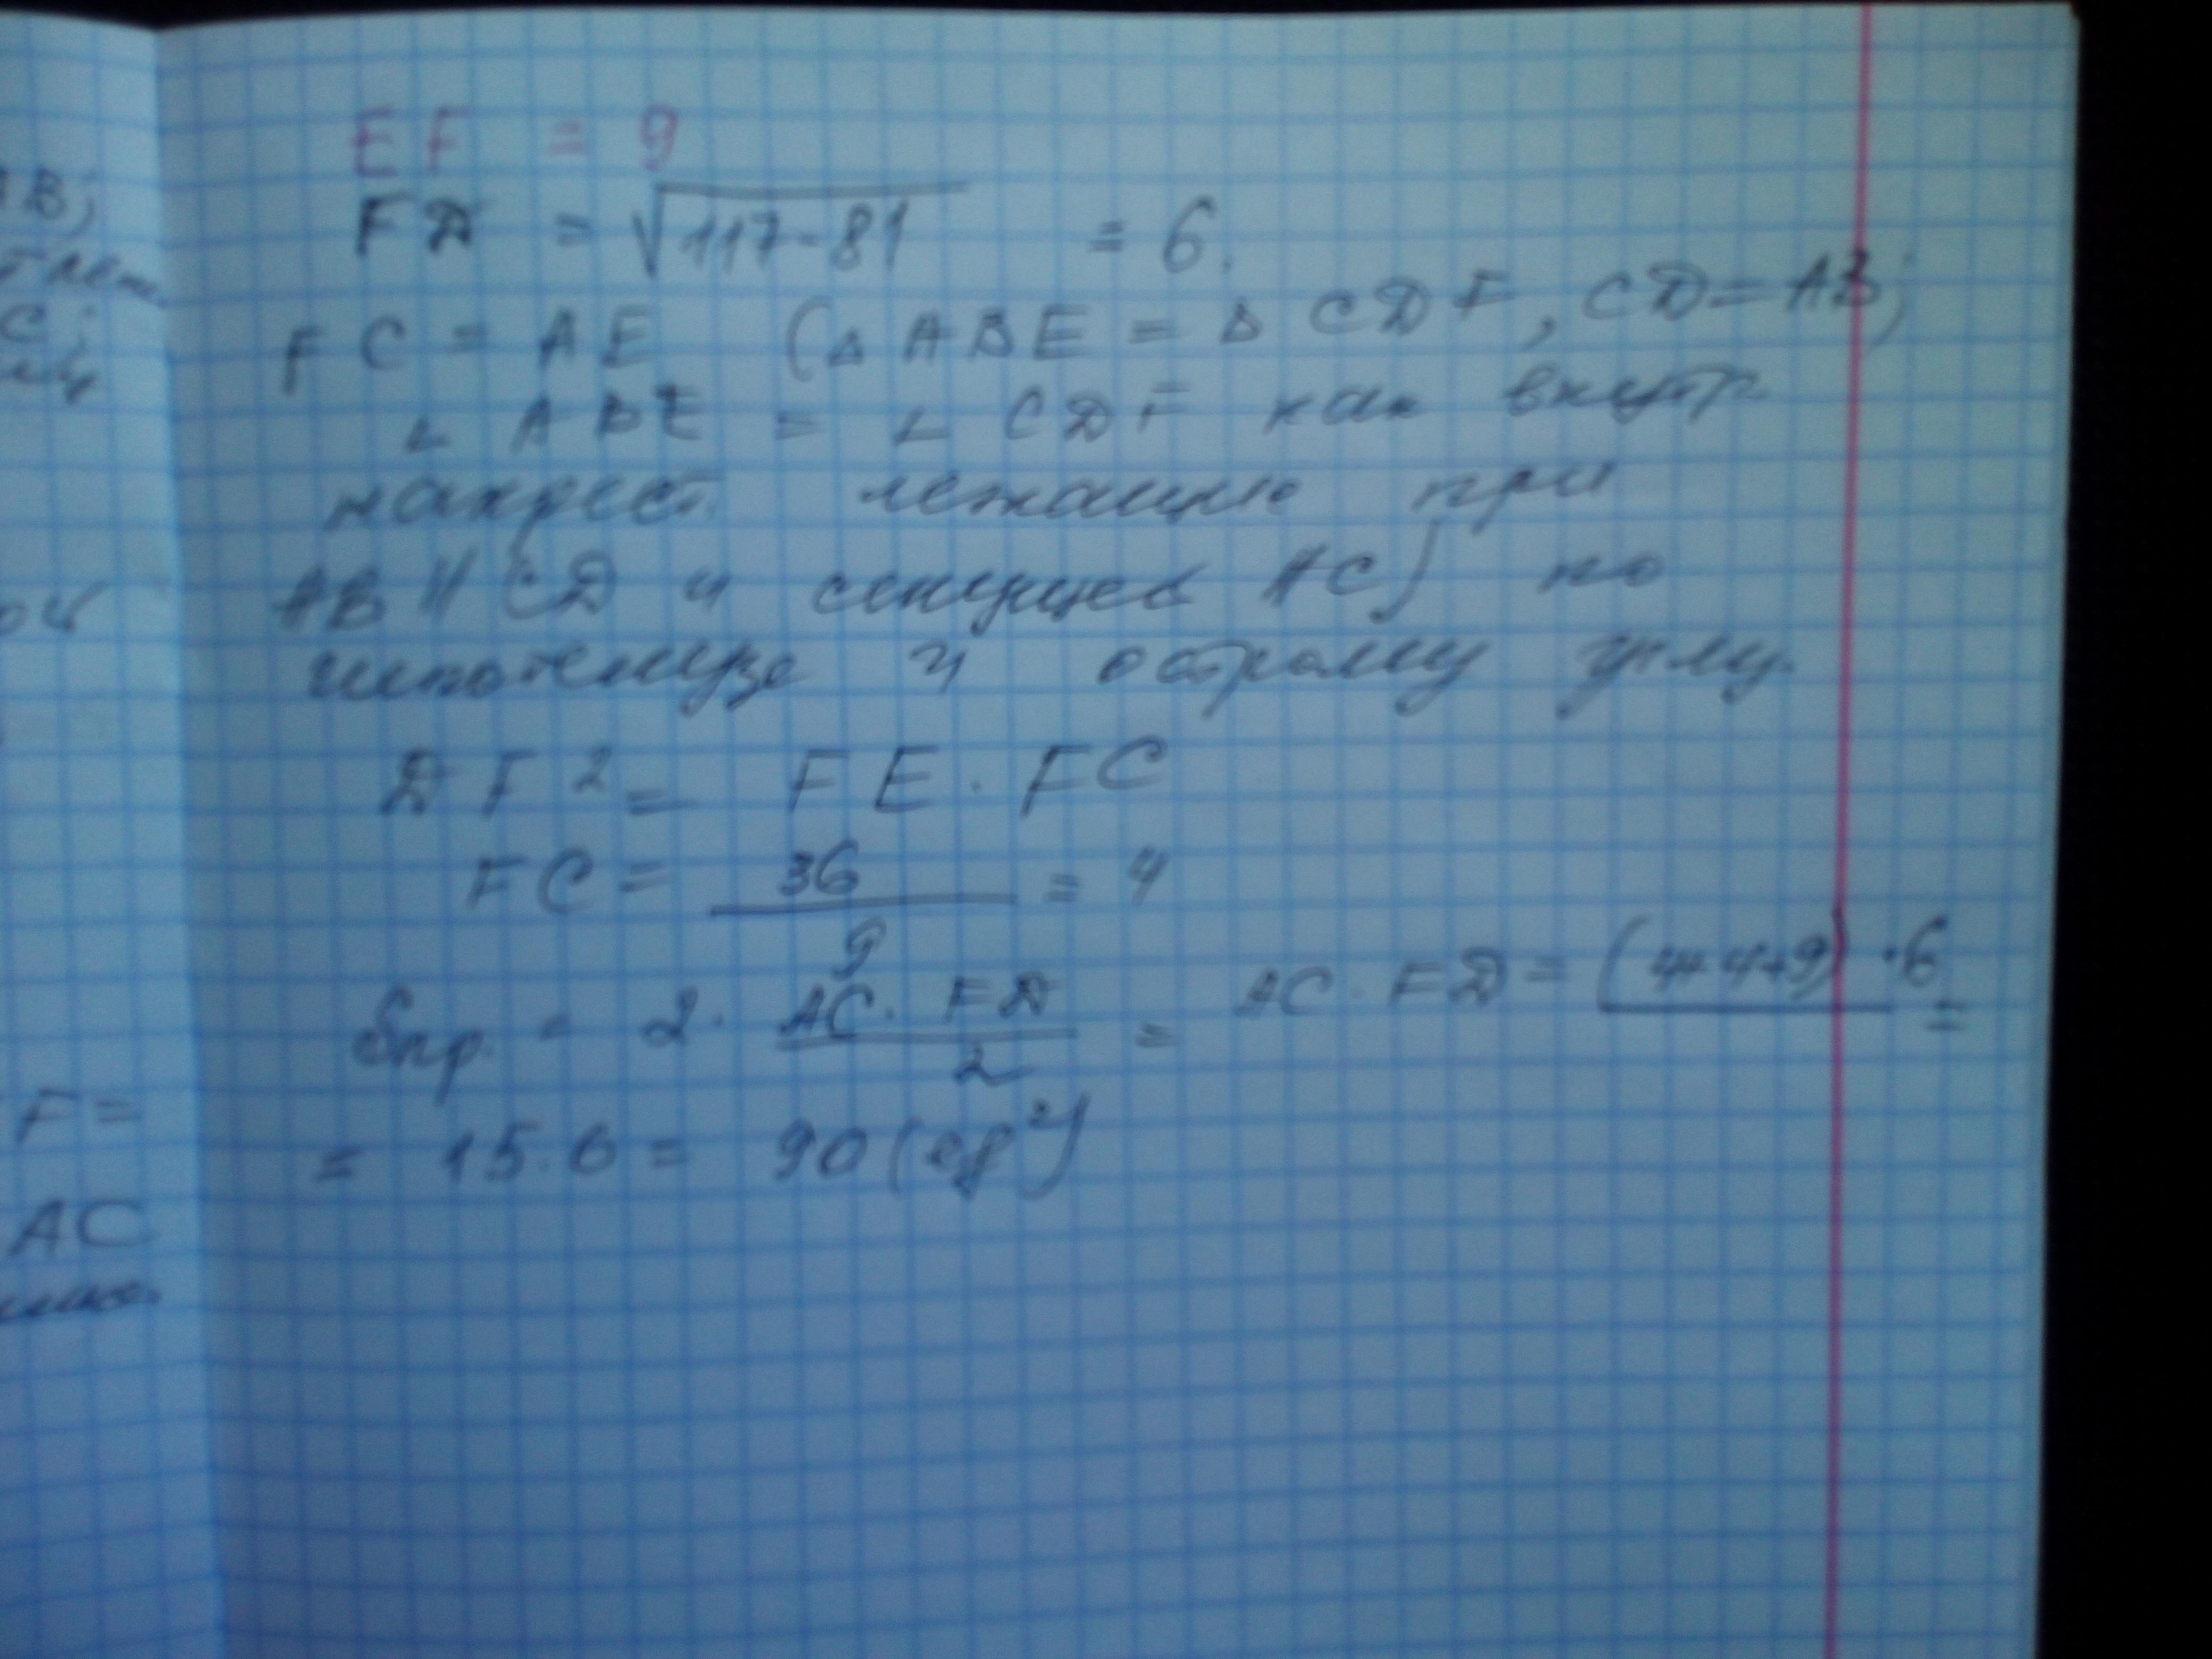 AB;
C;
F =
AC
EF = 9
FD = √117-81 = 6.
FC = AE (△ ABE = △ CDF, CD = AB;
∠ ABE = ∠ CDF как внутр
накрест. лежащие при
AB || CD и секущей AC) по
гипотенузе и острому углу.
DF² = FE · FC
FC = 36/9 = 4
Sпр. = 2 · AC · FD/2 = AC · FD = (4+4+9) · 6 =
= 15 · 6 = 90 (ед²)